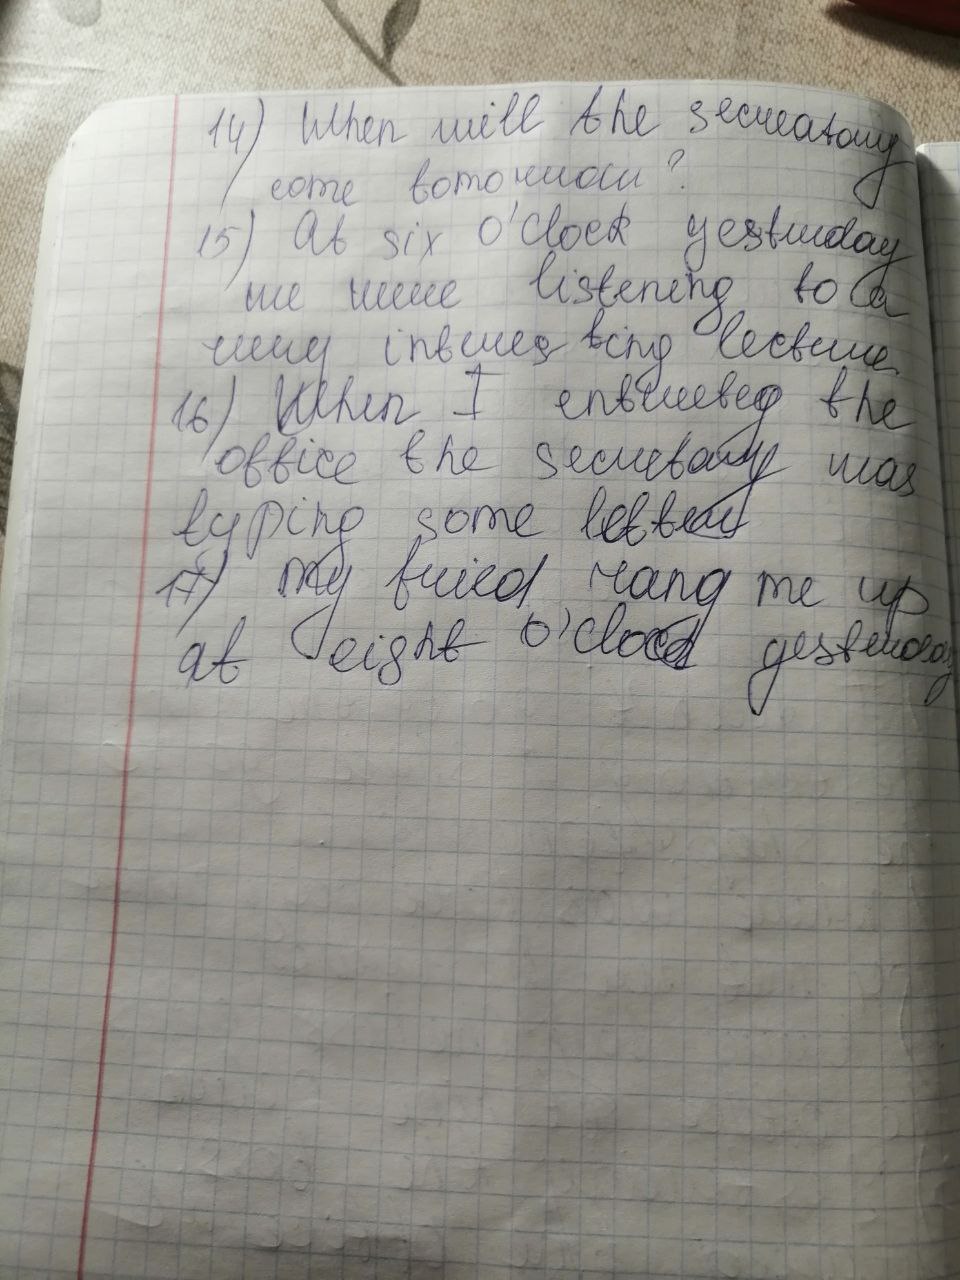 14) When will the secreatory
come tomorrow?
15) At six o'clock yesterday
we were listening to a
very interesting lecture
16) When I entered the
office the secretary was
typing some letters
17) My fried rang me up
at eight o'clock yesterday